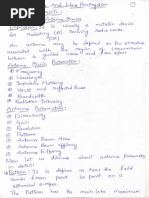 And Wave Propagation
Antenna Basics
Definition: It is usually a metallic device
for radiating (or) receiving radio waves
antenna is defined as the structure
associated with the region of transition
between a guided wave and a free space
Antenna Basic Parameters:
① Frequency
② Wavelength
③ Impedance Matching
④ VSWR and reflected Power
⑤ Bandwidth
⑥ Radiation Intensity
Antenna Parameters:
① Directivity
② Gain
③ Radiation
④ Pattern
⑤ Antenna Beam Area
⑥ Antenna Beam efficiency
⑦ Antenna Efficiency
Now let us discuss about antenna parameters
in detail
Pattern: It is defined as how the field varies
from point to point on a
spherical surface
The Pattern has the main lobe maximum